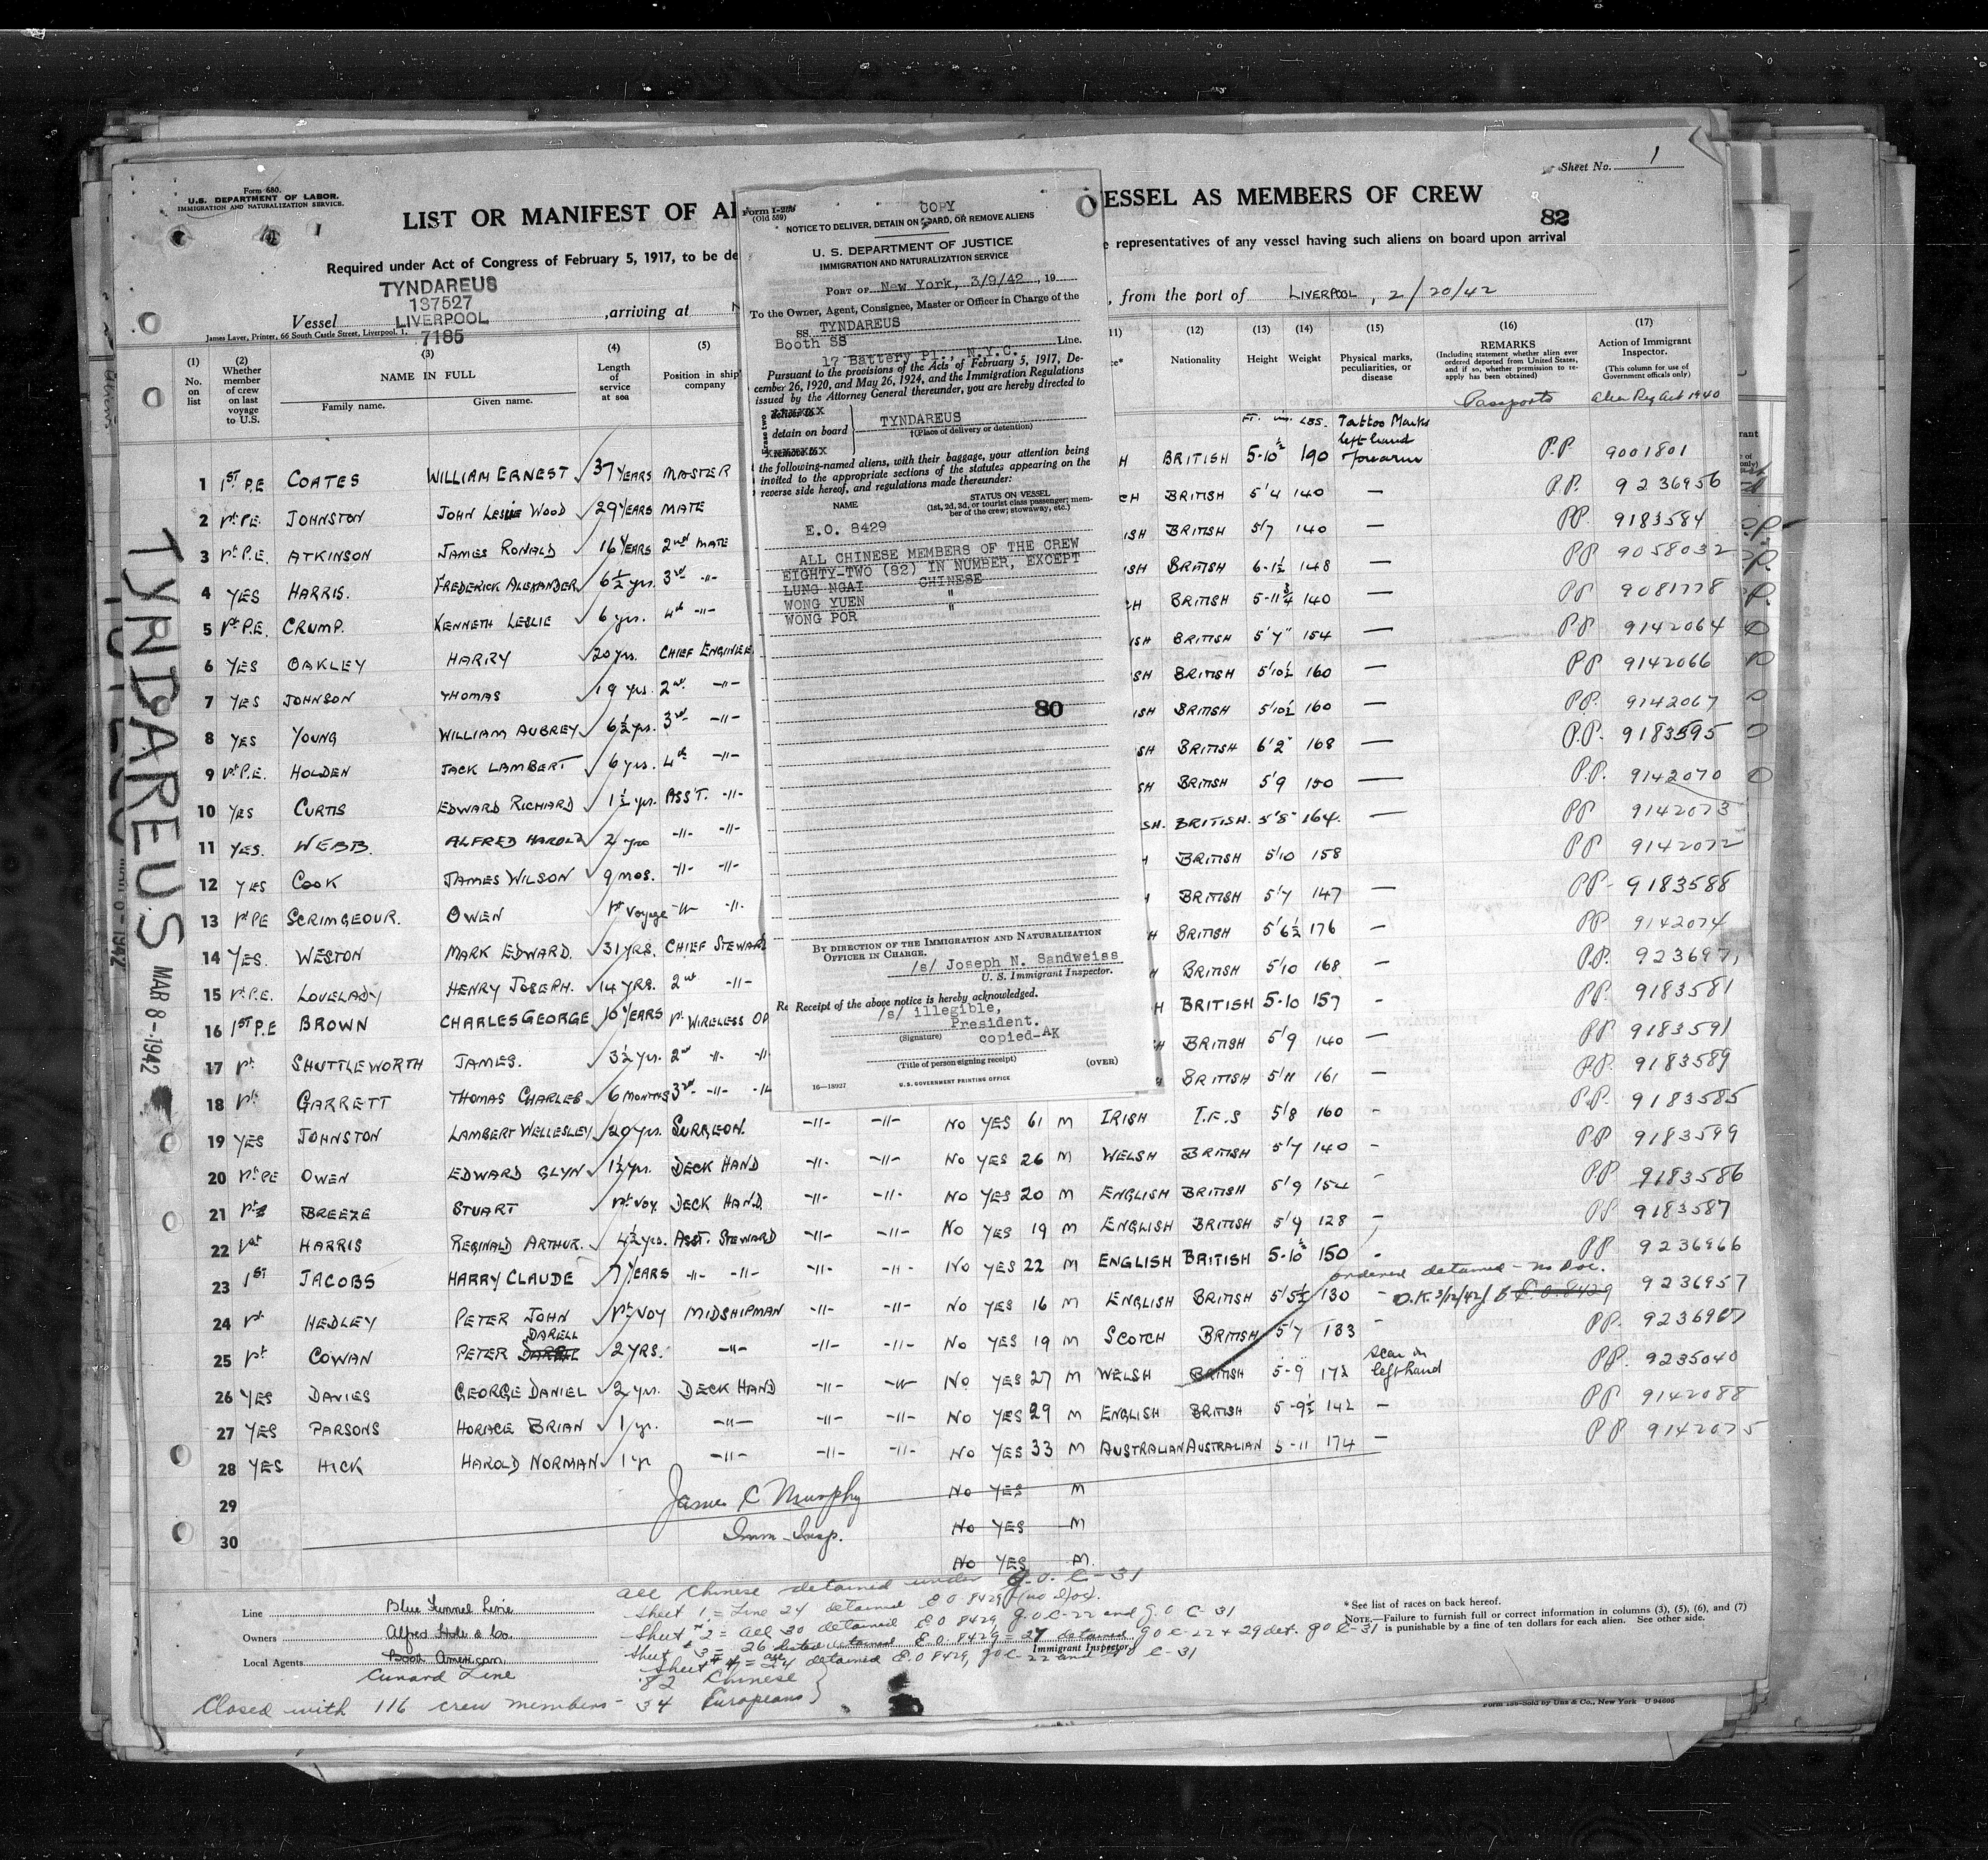 Sheet No. 1
Form 680.
U.S. DEPARTMENT OF LABOR.
IMMIGRATION AND NATURALIZATION SERVICE.
LIST OR MANIFEST OF AL
ESSEL AS MEMBERS OF CREW
82
Required under Act of Congress of February 5, 1917, to be de
e representatives of any vessel having such aliens on board upon arrival
TYNDAREUS
137527
LIVERPOOL
7185
Vessel , arriving at N
, from the port of LIVERPOOL, 2/20/42
James Laver, Printer, 66 South Castle Street, Liverpool. 1.
(1) No. on list
(2) Whether member of crew on last voyage to U.S.
(3) NAME IN FULL
Family name. Given name.
(4) Length of service at sea
(5) Position in ship's company
11)
(12) Nationality
(13) Height
(14) Weight
(15) Physical marks, peculiarities, or disease
(16) REMARKS
(Including statement whether alien ever ordered deported from United States, and if so, whether permission to re-apply has been obtained)
Passports
(17) Action of Immigrant Inspector.
(This column for use of Government officials only)
Alien Reg Act 1940
Ft. ins. LBS. Tattoo Marks left hand forearm
1 1ST P.E COATES WILLIAM ERNEST 37 YEARS MASTER H BRITISH 5-10½ 190 P.P. 9001801
2 1st P.E. JOHNSTON JOHN LESLIE WOOD 29 YEARS MATE CH BRITISH 5'4 140 — P.P. 9236956
3 1st P.E. ATKINSON JAMES RONALD 16 YEARS 2nd MATE ISH BRITISH 5'7 140 — PP 9183584
4 YES HARRIS. FREDERICK ALEXANDER 6½ yrs. 3rd -"- ISH BRITISH 6-1½ 148 — PP 9058032
5 1st P.E. CRUMP. KENNETH LESLIE 6 yrs. 4th -"- CH BRITISH 5-11¾ 140 — PP 9081778
6 YES OAKLEY HARRY 20 yrs. CHIEF ENGINEE ISH BRITISH 5'7" 154 — PP 9142064
7 YES JOHNSON THOMAS 19 yrs. 2nd -"- SH BRITISH 5'10½ 160 — PP 9142066
8 YES YOUNG WILLIAM AUBREY 6½ yrs. 3rd -"- ISH BRITISH 5'10½ 160 — PP. 9142067
9 1st P.E. HOLDEN JACK LAMBERT 6 yrs. 4th -"- SH BRITISH 6'2" 168 — P.P. 9183595
10 YES CURTIS EDWARD RICHARD 1½ yrs. ASS'T. -"- SH BRITISH 5'9 150 — P.P. 9142070
11 YES. WEBB. ALFRED HAROLD 2 yrs -"- -"- SH. BRITISH. 5'8" 164. — PP 9142073
12 YES COOK JAMES WILSON 9 MOS. -"- -"- BRITISH 5'10 158 PP 9142072
13 1st PE SCRIMGEOUR. OWEN 1st Voyage -"- -"- BRITISH 5'7 147 — PP- 9183588
14 YES. WESTON MARK EDWARD. 31 YRS. CHIEF STEWARD H BRITISH 5'6½ 176 — PP 9142074
15 1st P.E. LOVELADY HENRY JOSEPH. 14 YRS. 2nd -"- H BRITISH 5'10 168 - P.P. 923697
16 1ST P.E BROWN CHARLES GEORGE 10 YEARS 1st WIRELESS OP H BRITISH 5-10 157 - PP 9183581
17 1st SHUTTLEWORTH JAMES. 3½ yrs. 2nd -"- -"- H BRITISH 5'9 140 - PP 9183591
18 1st GARRETT THOMAS CHARLES 6 MONTHS 3rd -"- -"- BRITISH 5'11 161 - PP. 9183589
19 YES JOHNSTON LAMBERT WELLESLEY 20 yrs. SURGEON. -"- -"- NO YES 61 M IRISH I.F.S 5'8 160 - P.P. 9183585
20 1st PE OWEN EDWARD GLYN 1½ yrs. DECK HAND -"- -"- NO YES 26 M WELSH BRITISH 5'7 140 - PP 9183599
21 1st BREEZE STUART 1st VOY. DECK HAND. -"- -"- NO YES 20 M ENGLISH BRITISH 5'9 154 - PP 9183586
22 1st HARRIS REGINALD ARTHUR. 4½ yrs. ASST. STEWARD -"- -"- NO YES 19 M ENGLISH BRITISH 5'9 128 - PP 9183587
23 1ST JACOBS HARRY CLAUDE 7 YEARS -"- -"- -"- -"- NO YES 22 M ENGLISH BRITISH 5-10½ 150 - PP 9236966
ordered detained - no Doc.
24 1st HEDLEY PETER JOHN 1st VOY MIDSHIPMAN -"- -"- NO YES 16 M ENGLISH BRITISH 5'5½ 130 - O.K. 3/12/42 E.O. 8429 9236957
25 1st COWAN PETER DARELL 2 YRS. -"- -"- -"- NO YES 19 M SCOTCH BRITISH 5'7 133 - PP. 9236967
26 YES DAVIES GEORGE DANIEL 2 yrs. DECK HAND -"- -"- NO YES 27 M WELSH BRITISH 5-9 172 scar on left hand PP. 9235040
27 YES PARSONS HORACE BRIAN 1 yr. -"- -"- -"- NO YES 29 M ENGLISH BRITISH 5-9½ 142 - PP 9142088
28 YES HICK HAROLD NORMAN 1 yr -"- -"- -"- NO YES 33 M AUSTRALIAN AUSTRALIAN 5-11 174 - PP 9142075
29 NO YES M
James C Murphy
30 NO YES M
Imm. Insp.
NO YES M.
Form I-259
(Old 559)
COPY
NOTICE TO DELIVER, DETAIN ON BOARD, OR REMOVE ALIENS
U. S. DEPARTMENT OF JUSTICE
IMMIGRATION AND NATURALIZATION SERVICE
PORT OF New York, 3/9/42, 19
To the Owner, Agent, Consignee, Master or Officer in Charge of the
SS. TYNDAREUS
Booth SS Line.
17 Battery Pl., N.Y.C.
Pursuant to the provisions of the Acts of February 5, 1917, De-
cember 26, 1920, and May 26, 1924, and the Immigration Regulations
issued by the Attorney General thereunder, you are hereby directed to
detain on board TYNDAREUS
†(Place of delivery or detention)
the following-named aliens, with their baggage, your attention being
invited to the appropriate sections of the statutes appearing on the
reverse side hereof, and regulations made thereunder:
NAME STATUS ON VESSEL
(1st, 2d, 3d, or tourist class passenger; mem-
ber of the crew; stowaway, etc.)
E.O. 8429
ALL CHINESE MEMBERS OF THE CREW
EIGHTY-TWO (82) IN NUMBER, EXCEPT
LUNG NGAI CHINESE
WONG YUEN "
WONG POR "
80
BY DIRECTION OF THE IMMIGRATION AND NATURALIZATION
OFFICER IN CHARGE.
/s/ Joseph N. Sandweiss
U. S. Immigrant Inspector.
Re Receipt of the above notice is hereby acknowledged.
/s/ illegible,
President.
(Signature) copied-AK
(Title of person signing receipt)
(OVER)
16—18927 U.S. GOVERNMENT PRINTING OFFICE
TYNDAREUS
MAR 8-1942
1942
all Chinese detained under G.O. C-31
Sheet 1 = Line 24 detained E.O 8429 (no Doc.
Sheet #2 = all 30 detained E.O 8429, G.O C-22 and G.O C-31
Sheet #3 = 26 listed detained E.O. 8429 = 27 detained G O C-22 + 29 det. G O C-31
Sheet #4 = all 24 detained E.O 8429, G O C-22 and G O C-31
82 Chinese
34 Europeans
Closed with 116 crew members -
Line Blue Funnel Line
Owners Alfred Holt & Co.
Local Agents Booth American
Cunard Line
Immigrant Inspector.
* See list of races on back hereof.
NOTE.—Failure to furnish full or correct information in columns (3), (5), (6), and (7)
is punishable by a fine of ten dollars for each alien. See other side.
Form 188-Sold by Unz & Co., New York U 94695